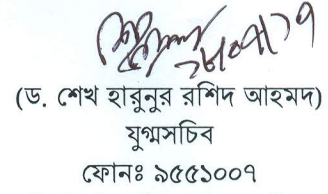 ২৮/০৭/১৭
(ড. শেখ হারুনুর রশিদ আহমদ)
যুগ্মসচিব
ফোনঃ ৯৫৫১০০৭